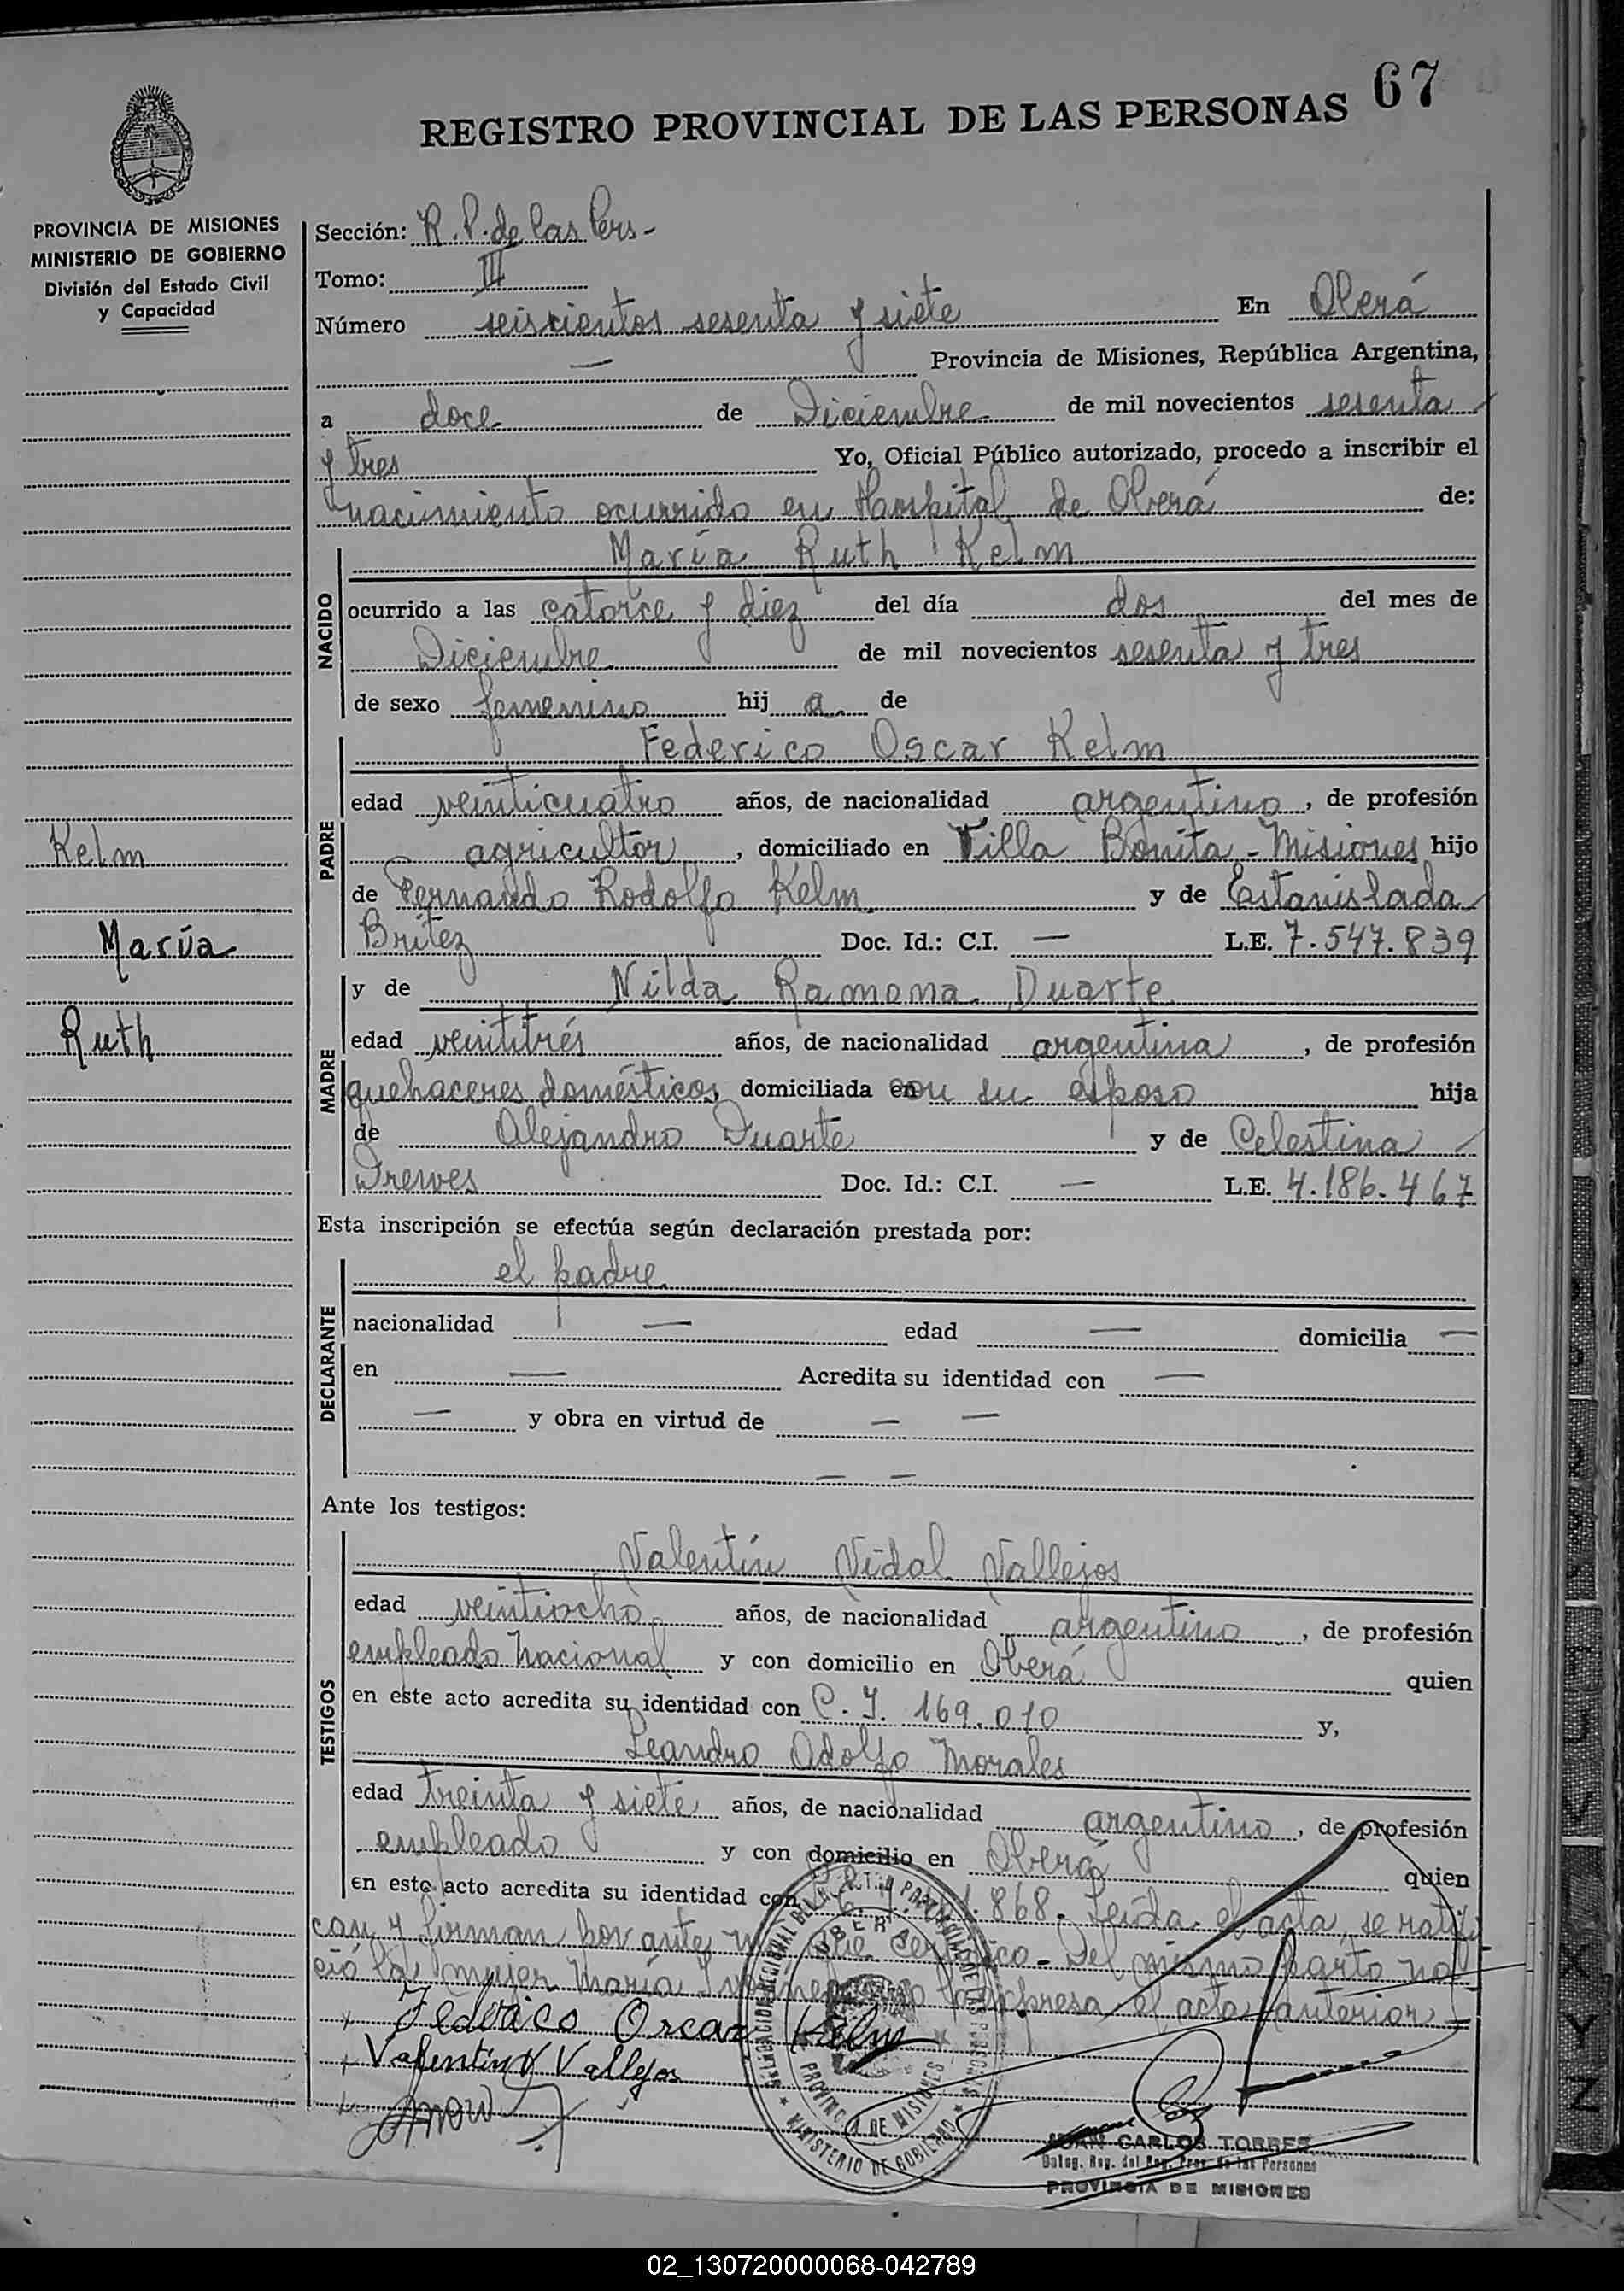 67
REGISTRO PROVINCIAL DE LAS PERSONAS
PROVINCIA DE MISIONES
MINISTERIO DE GOBIERNO
División del Estado Civil
y Capacidad
Sección: R. P. de las Pers-
Tomo: III
Número seiscientos sesenta y siete En Oberá
— Provincia de Misiones, República Argentina,
a doce de Diciembre de mil novecientos sesenta
y tres Yo, Oficial Público autorizado, procedo a inscribir el
nacimiento ocurrido en Hospital de Oberá de:
NACIDO
María Ruth Kelm
ocurrido a las catorce y diez del día dos del mes de
Diciembre de mil novecientos sesenta y tres
de sexo femenino hij a de
PADRE
Federico Oscar Kelm
edad veinticuatro años, de nacionalidad argentino, de profesión
agricultor, domiciliado en Villa Bonita - Misiones hijo
de Fernando Rodolfo Kelm y de Estanislada
Britez Doc. Id.: C.I. — L.E. 7.547.839
Kelm
María
Ruth
MADRE
y de Nilda Ramona Duarte
edad veintitrés años, de nacionalidad argentina, de profesión
quehaceres domésticos, domiciliada en con su esposo hija
de Alejandro Duarte y de Celestina
Drewes Doc. Id.: C.I. — L.E. 4.186.467
Esta inscripción se efectúa según declaración prestada por:
DECLARANTE
el padre
nacionalidad — edad — domicilia —
en — Acredita su identidad con —
— y obra en virtud de — —
— —
Ante los testigos:
TESTIGOS
Valentín Vidal Vallejos
edad veintiocho años, de nacionalidad argentino, de profesión
empleado nacional y con domicilio en Oberá quien
en este acto acredita su identidad con C. I. 169.010 y,
Leandro Adolfo Morales
edad treinta y siete años, de nacionalidad argentino, de profesión
empleado y con domicilio en Oberá quien
en este acto acredita su identidad con 868. Leída el acta, se ratifi
can y firman por ante que certifico - Del mismo parto na
ció la mujer María expresa el acta anterior -
Federico Oscar Kelm
Valentín V Vallejos
OBERA
PROVINCIA DE MISIONES
MINISTERIO DE GOBIERNO
JUAN CARLOS TORRES
Deleg. Reg. del Reg. Prov. de las Personas
PROVINCIA DE MISIONES
02_130720000068-042789